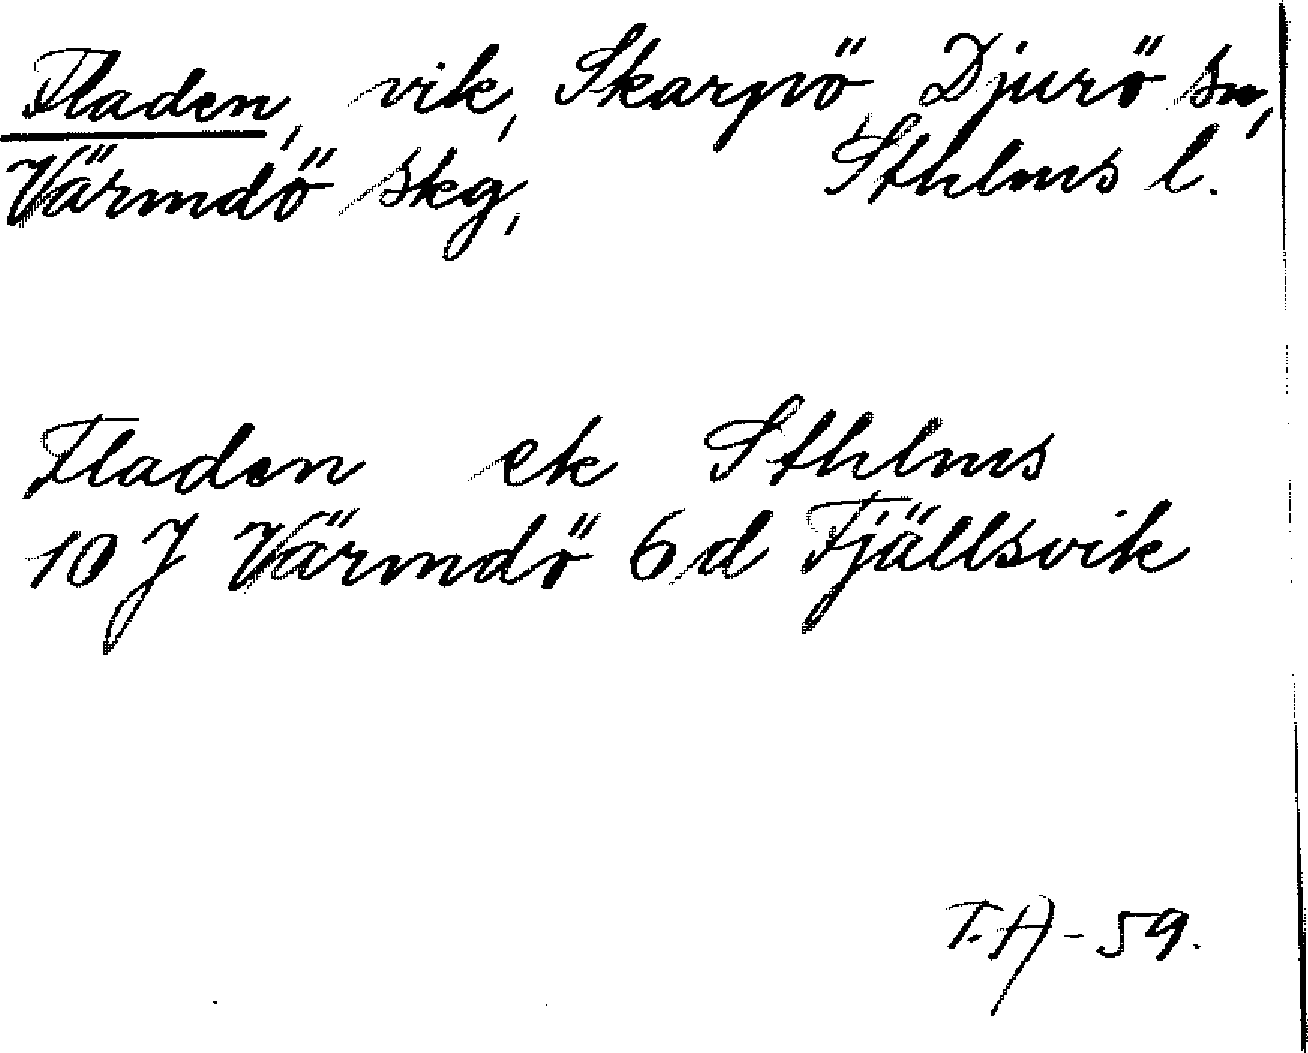 Fladen, vik, Skarpö, Djurö sn,
Värmdö skg, Sthlms l.
Fladen ek Sthlms
10 J Värmdö 6 d Fjällsvik
T.A-59.